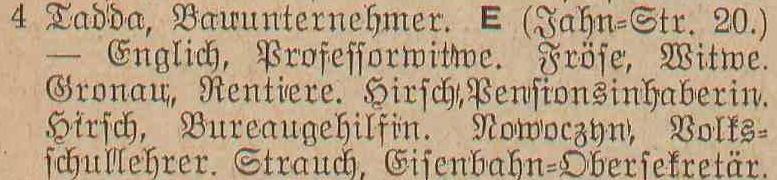 4 Tadda, Bauunternehmer. E (Jahn-Str. 20.)
— Englich, Professorwitwe. Fröse, Witwe.
Gronau, Rentiere. Hirsch, Pensionsinhaberin.
Hirsch, Bureaugehilfin. Nowoczyn, Volks-
schullehrer. Strauch, Eisenbahn-Obersekretär.